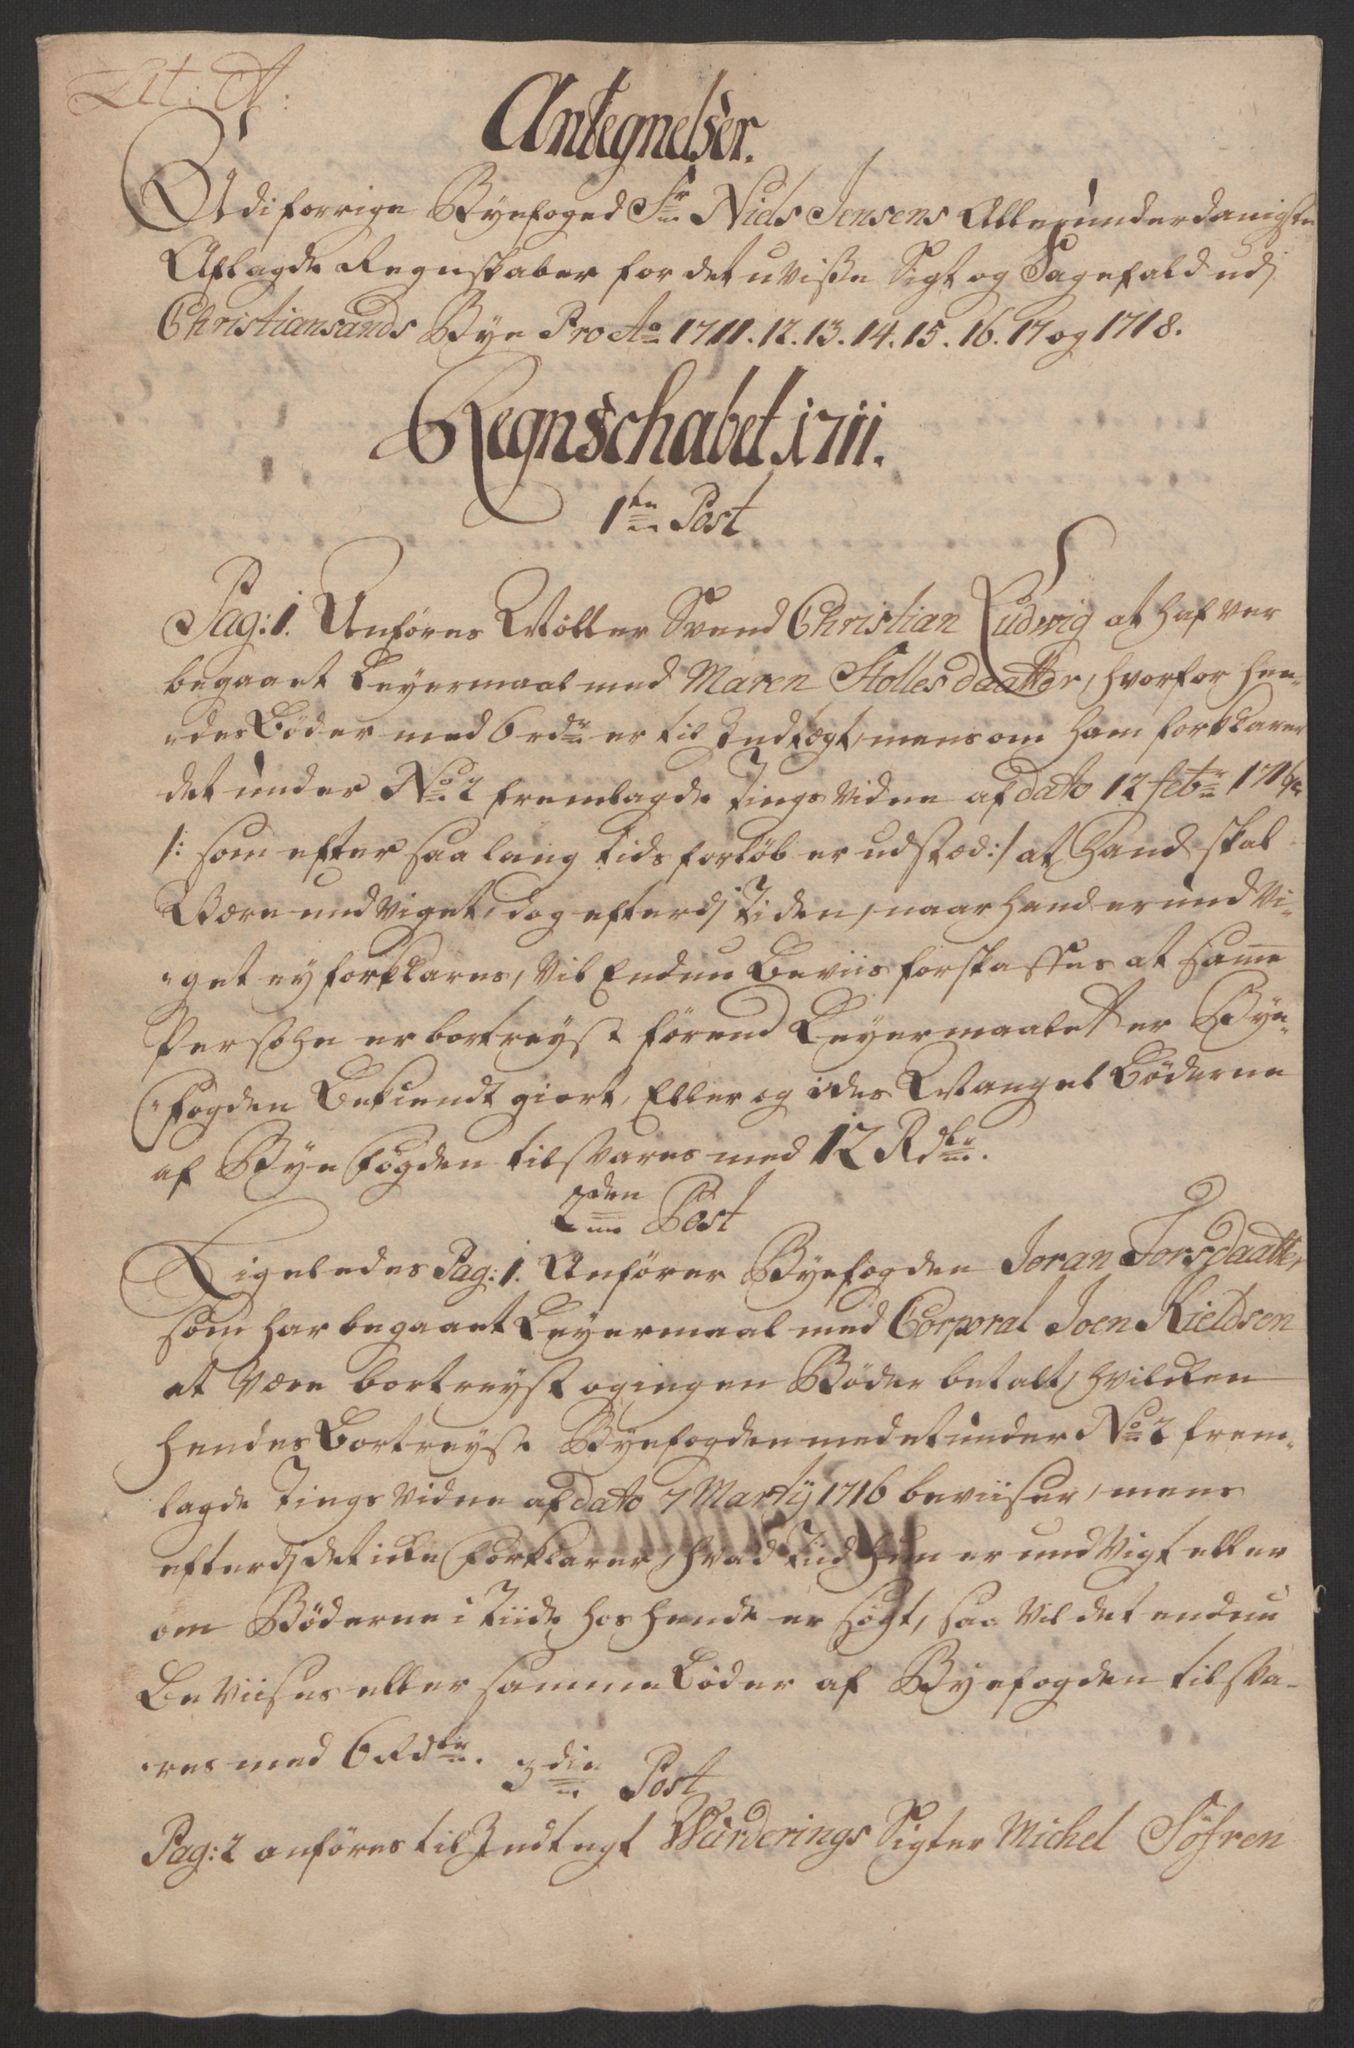 Lit: A:
Antegnelser.
Udi forrige Byefoged Sr Niels Jensens Allerunderdanigste
Aflagde Regnskaber for det uvisse Sigt og Sagefald udj
Christiansands Bye Pro Ao 1711. 12. 13. 14. 15. 16. 17 og 1718.
Regnschabet 1711.
1te Post
Pag: 1. Anføres Møller Svend Christian Ludwig at hafver
begaaet Leyermaal med Maren Stollesdaatter, hvorfor hen-
des Bøder med 6 rdr er til Indtægt, mens om ham forklarer
det under No 2 fremlagde Tings Vidne af dato 12 febr 1716
/: som efter saa lang tids forløb er udstæd :/ at Hand skal
Være undviget, dog efterdj Tiden, naar hand er undvi-
get ey forklares, Vil Endnu Beviis forskaffes at samme
Persohn er bortreyst førend Leyermaalet er Bye-
fogden Bekiendt giort, Eller og i des Mangel Bøderne
af Byefogden tilsvares med 12 Rdlr.
2den Post
Ligeledes Pag: 1. Anfører Byefogden Joran Torsdaatter
som har begaaet Leyermaal med Corporal Joen Kieldsen
at Være bortreyst og ingen Bøder betalt, hvilken
hendes Bortreyse Byefogden med et under No 2 frem-
lagde Tings Vidne af dato 7 Martij 1716 beviiser, mens
efterdj det icke forklarer, hvad Tiid hun er undvigt eller
om Bøderne i Tiide hos hende er søgt, saa vil det endnu
Beviises eller samme Bøder af Byefogden tilsva-
res med 6 Rdlr.
3die Post
Pag: 2 anføres til Indtegt Wurderings Sigter Michel Söfren